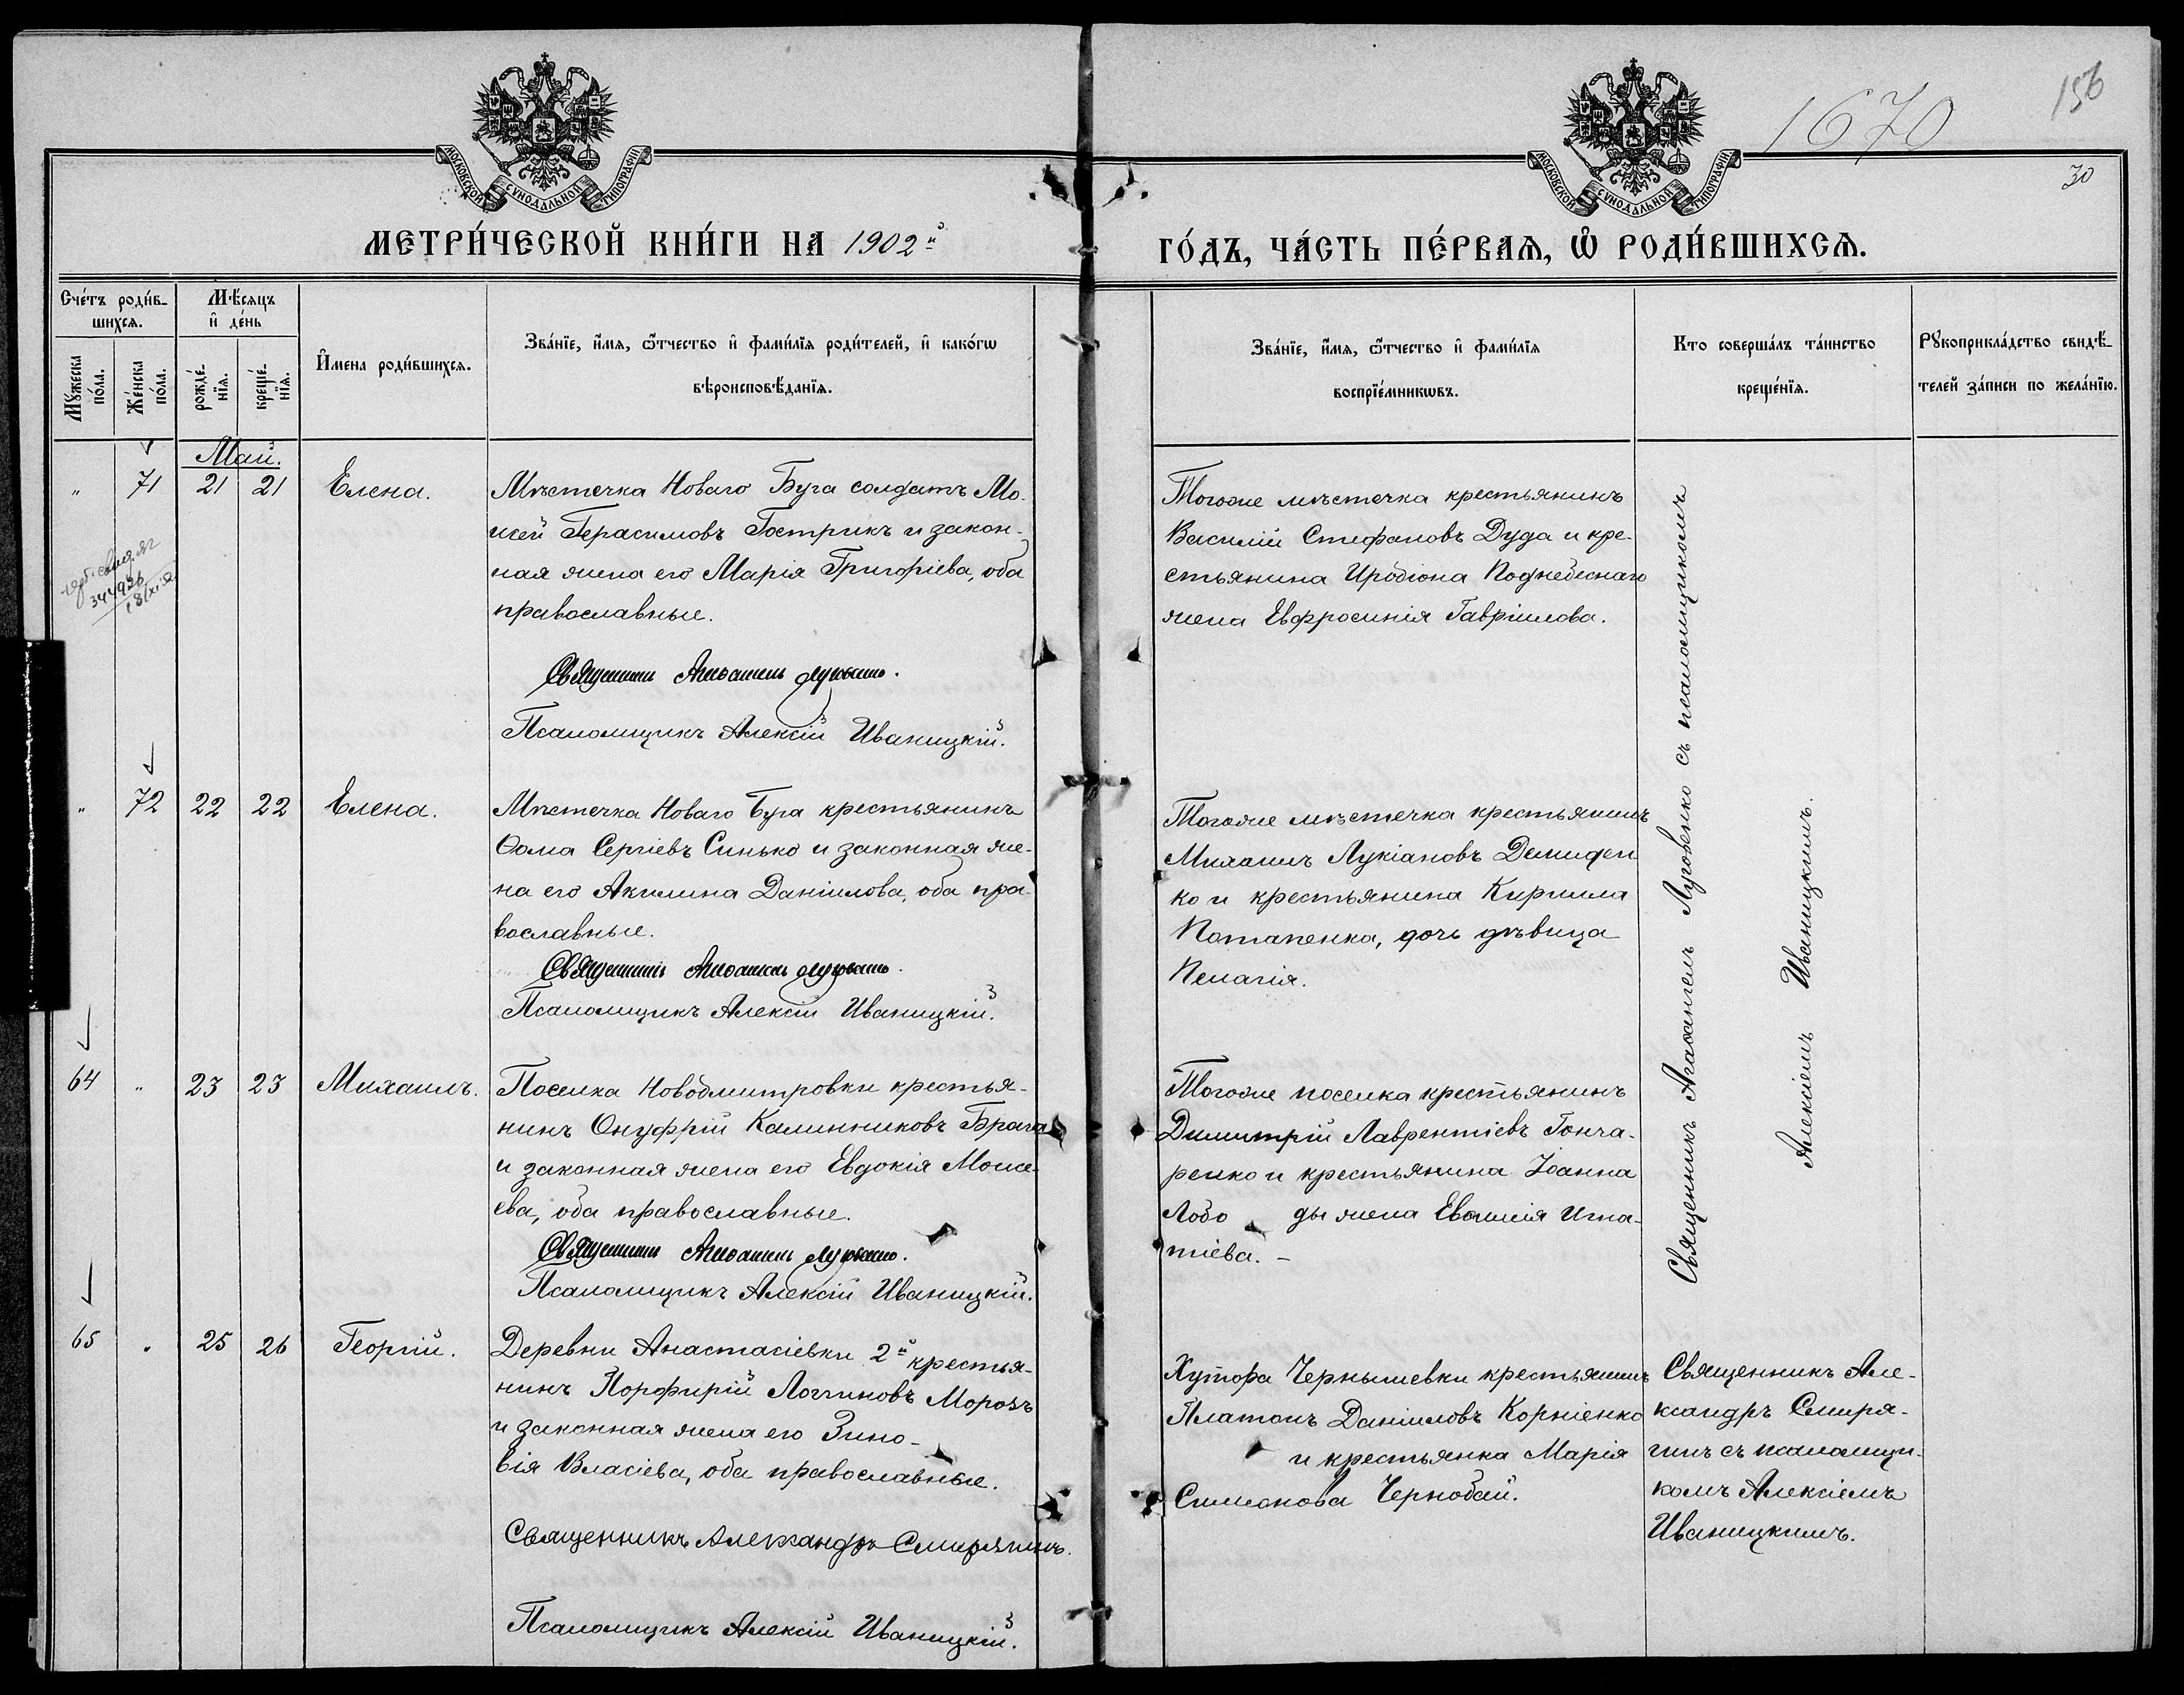 1670
156
30
МОСКОВСКОЙ СѴНОДАЛЬНОЙ ТИПОГРАФІИ
МОСКОВСКОЙ СѴНОДАЛЬНОЙ ТИПОГРАФІИ
МЕТРИ́ЧЕСКОЙ КНИ́ГИ НА 1902й
ГО́ДЪ, ЧА́СТЬ ПЕ́РВАѦ, Ѽ РОДИ́ВШИХСѦ.
Сче́тъ роди́в-
шихсѧ.
Мꙋ́жеска по́ла.
Же́нска по́ла.
Мѣ́сѧцъ
и҆ де́нь
рожде́-
нїѧ.
креще́-
нїѧ.
И҆мена роди́вшихсѧ.
Зва́нїе, и҆́мѧ, ѻ҆́тчество и҆ фами́лїѧ роди́телей, и҆ како́гѡ
вѣроисповѣ́данїѧ.
Зва́нїе, и҆́мѧ, ѻ҆́тчество и҆ фами́лїѧ
воспрїе́мникѡвъ.
Кто соверша́лъ та́инство
креще́нїѧ.
Рꙋкоприкла́дство свидѣ́-
телей за́писи по жела́нїю.
Май.
" 71 21 21 Елена.
Мѣстечка Новаго Буга солдатъ Мо-
исей Герасимовъ Гострикъ и закон-
ная жена его Марія Григоріева, оба
православные.
Священникъ Агаѳангелъ Луговенко.
Псаломщикъ Алексій Иваницкій.
Тогоже мѣстечка крестьянинъ
Василій Стефановъ Дуда и кре-
стьянина Иродіона Поднебеснаго
жена Евфросинія Гавріилова.
34493б
" 72 22 22 Елена.
Мѣстечка Новаго Буга крестьянинъ
Ѳома Сергіевъ Синько и законная же-
на его Акилина Даніилова, оба пра-
вославные.
Священникъ Агаѳангелъ Луговенко.
Псаломщикъ Алексій Иваницкій.
Тогоже мѣстечка крестьянинъ
Михаилъ Лукіановъ Демиден
ко и крестьянина Кирилла
Потапенка, дочь дѣвица
Пелагія.
64 " 23 23 Михаилъ.
Поселка Новодмитровки крестья-
нинъ Онуфрій Калинниковъ Брага
и законная жена его Евдокія Моисе-
ева, оба православные.
Священникъ Агаѳангелъ Луговенко.
Псаломщикъ Алексій Иваницкій.
Тогоже поселка крестьянинъ
Димитрій Лаврентіевъ Гонча-
ренко и крестьянина Іоанна
Лобо ды жена Евѳимія Игна-
тіева. –
Священникъ Агаѳангелъ Луговенко съ псаломщикомъ
Алексіемъ Иваницкимъ.
65 " 25 26 Георгій.
Деревни Анастасіевки 2й крестья-
нинъ Порфирій Логгиновъ Морозъ
и законная жена его Зино-
вія Власіева, оба православные.
Священникъ Александръ Смирягинъ.
Псаломщикъ Алексій Иваницкій.
Хутора Чернышевки крестьянинъ
Платонъ Даніиловъ Корніенко
и крестьянка Марія
Симеонова Чернобай.
Священникъ Але-
ксандръ Смиря-
гинъ съ псаломщи-
комъ Алексіемъ
Иваницкимъ.